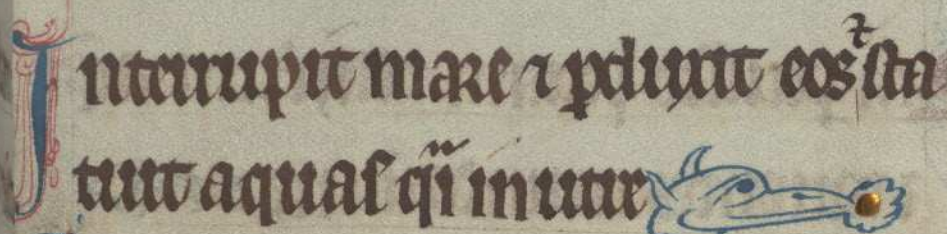 Interrupit mare ⁊ ꝑduxit eos ⁊ sta
tuit aquas qͥi in utre